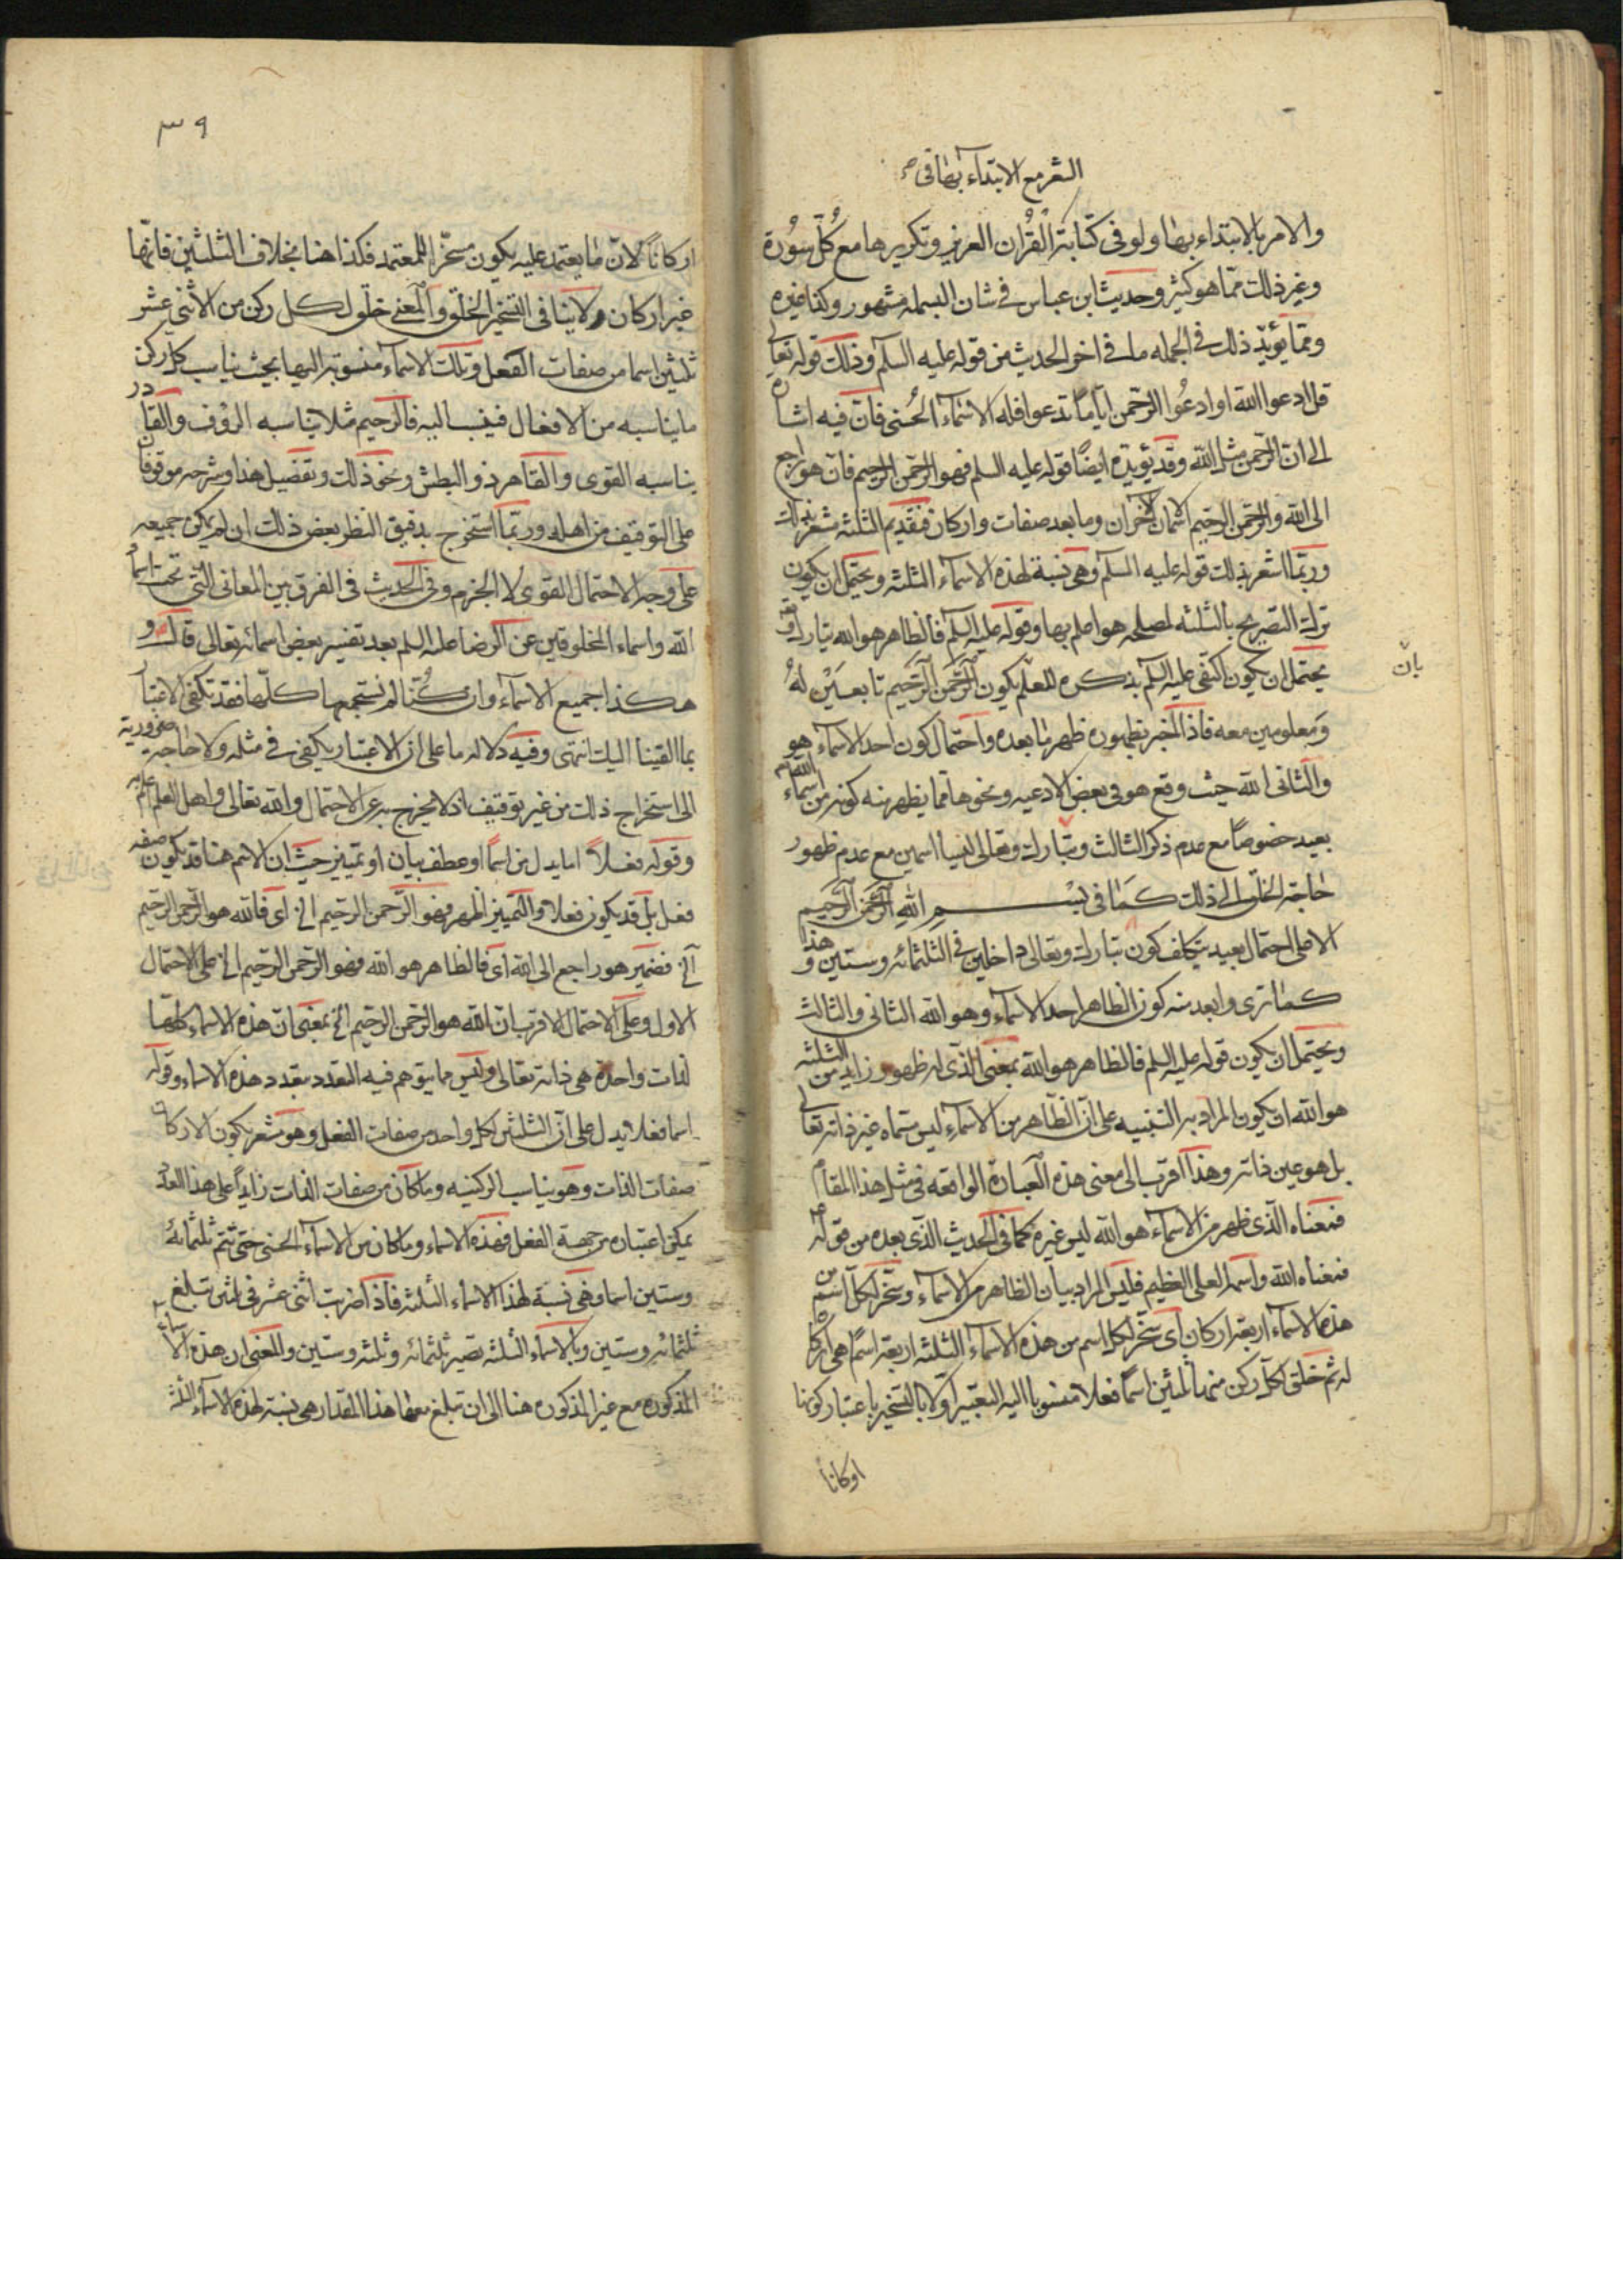 الشعر مع الابتداء بها في
والامر بالابتداء بها ولو في كتابة القُرْان العزيز وتكريرها مع كُلّ سُورة
وغير ذلك مما هو كثير وحديث ابن عباس في شان البسمله مشهور وكذا غيره
ومما يؤيّد ذلك في الجمله ما في اخر الحديث من قوله عليه السلم وذلك قوله تعالى
قل ادعوا الله او ادعُوا الرّحمن ايّاما تدعوا فله الاسْماء الحُسنى فان فيه اشارة
الى ان الرّحمن مثل الله وقد يؤيّده ايضًا قوله عليه السلم فهو الرحمن الرحيم فان هو راجع
الى الله والرحمن الرحيم اسمان اخران وما بعد صفات واركان فتقديم الثلثه مشعر بذلك
وربّما اشعر بذلك قوله عليه السلم وهي نسبة لهذه الاسماء الثلثه ويحتمل ان يكون
ترك التصريح بالثلثه لمصلحه هو اعلم بها وقوله عليه السلم فالظاهر هو الله تبارك وتع
يحتمل ان يكون اكتفى عليه السلم بذكره للعلم بكون الرَّحمن الرَّحيم تابعَيْن لهُ
بانّ
ومعلومين معه فاذا اخبر بظهوره ظهر ما بعده واحتمال كون احد الاسماء هو
والثاني الله حيث وقع هو في بعض الادعيه ونحوها مما يظهر منه كونه من اسماء الله تم
بعيد خصوصًا مع عدم ذكر الثالث وتبارك وتعالى ليسا اسمين مع عدم ظهور
حاجة الخلق الى ذلك كما في بسْمِ اللهِ الرَّحمن الرَّحيم
الا على احتمال بعيد بتكلف كون تبارك وتعالى داخلين في الثلثمائه وستين وهذا
كما ترى وابعد منه كون الظاهر احد الاسماء وهو الله الثاني والثالث
ويحتمل ان يكون قوله عليه السلم فالظاهر هو الله بمعنى الذي له ظهور زايد من الثلثه
هو الله ان يكون المراد به التنبيه على ان الظاهر من الاسماء ليس مسماه غير ذاته تعالى
بل هو عين ذاته وهذا اقرب الى معنى هذه العبارة الواقعه في مثل هذا المقام
فمعناه الذي ظهر من الاسماء هو الله ليس غيره كما في الحديث الذي بعده من قوله
فمعناه الله واسمه العلي العظيم فليس المراد بيان الظاهر من الاسماء وسخّر لكل اسم من
هذه الاسماء اربعة اركان اي سخر لكل اسم من هذه الاسماء الثلثه اربعة اسمًا هي اركان
له ثم خلق لكل ركن منها ثلثين اسمًا فعلا منسوبا اليه التعبير اولا بالتسخير باعتبار كونها
اركانا
٣٩
اركاناً لانّ ما يعتمد عليه يكون مسخّرا للمعتمد فكذا هنا بخلاف الثلثين فانها
غير اركان ولا ينافي التسخير الخلق والمعنى خلق لكل ركن من الاثنى عشر
ثلثين اسما من صفات الفعل وتلك الاسماء منسوبة اليها بحيث يناسب كل ركن
ما يناسبه من الافعال فينسب اليه فالرحيم مثلا يناسبه الرؤف والقادر
يناسبه القوى والقاهر ذو البطش ونحو ذلك وتفضيل هذا وشرحه موقوفا
على التوقيف من اهله وربّما استخرج بدقيق النظر بعض ذلك ان لم يكن جميعه
على وجه الاحتمال القوى لا الجزم وفي الحديث في الفرق بين المعاني التي تحت اسماء
الله واسماء المخلوقين عن الرضا عليه السلم بعد تفسير بعض اسمائه تعالى قال و
هكذا جميع الاسماء وان كُنّا لم نستجمعها كلّها فقد تكفى الاعتبار
بما القينا اليك انتهى وفيه دلاله ما على ان الاعتبار يكفي في مثله ولا حاجة ضرورية
الى استخراج ذلك من غير توقيف اذ لا يخرج به عن الاحتمال والله تعالى واهل العلم اعلم
وقوله فعلاً اما بدل من اسماً او عطف بيان او تمييز حيث ان الاسم هنا قد يكون صفه
فعل بل قد يكون فعلا والتمييز اظهر فهو الرحمن الرحيم الخ اي فالله هو الرحمن الرحيم
الخ فضمير هو راجع الى الله اي فالظاهر هو الله فهو الرحمن الرحيم الخ على الاحتمال
الاول وعلى الاحتمال الاقرب ان الله هو الرحمن الرحيم الخ بمعنى ان هذه الاسماء كلها
لذات واحدة هي ذاته تعالى وليس مما يتوهم فيه التعدد بتعدد هذه الاسماء وقوله
اسما فعلا يدل على ان الثلثين لكل واحد من صفات الفعل وهو مشعر بكون الاركان
صفات الذات وهو يناسب الركنيه وما كان من صفات الذات زايداً على هذا العدد
يمكن اعتباره من جهة الفعل فهذه الاسماء وما كان من الاسماء الحسنى حتى تتم ثلثمائة
وستين اسما وهي نسبة لهذه الاسماء الثلثه فاذا ضربت اثنى عشر في ثلثين تبلغ
ثلثمائه وستين وبالاسماء الثلثه تصير ثلثمائه وثلثه وستين والمعنى ان هذه الاسماء
المذكوره مع غير المذكوره هنا الى ان تبلغ معها هذا المقدار هي نسبة لهذه الاسماء الثلثه